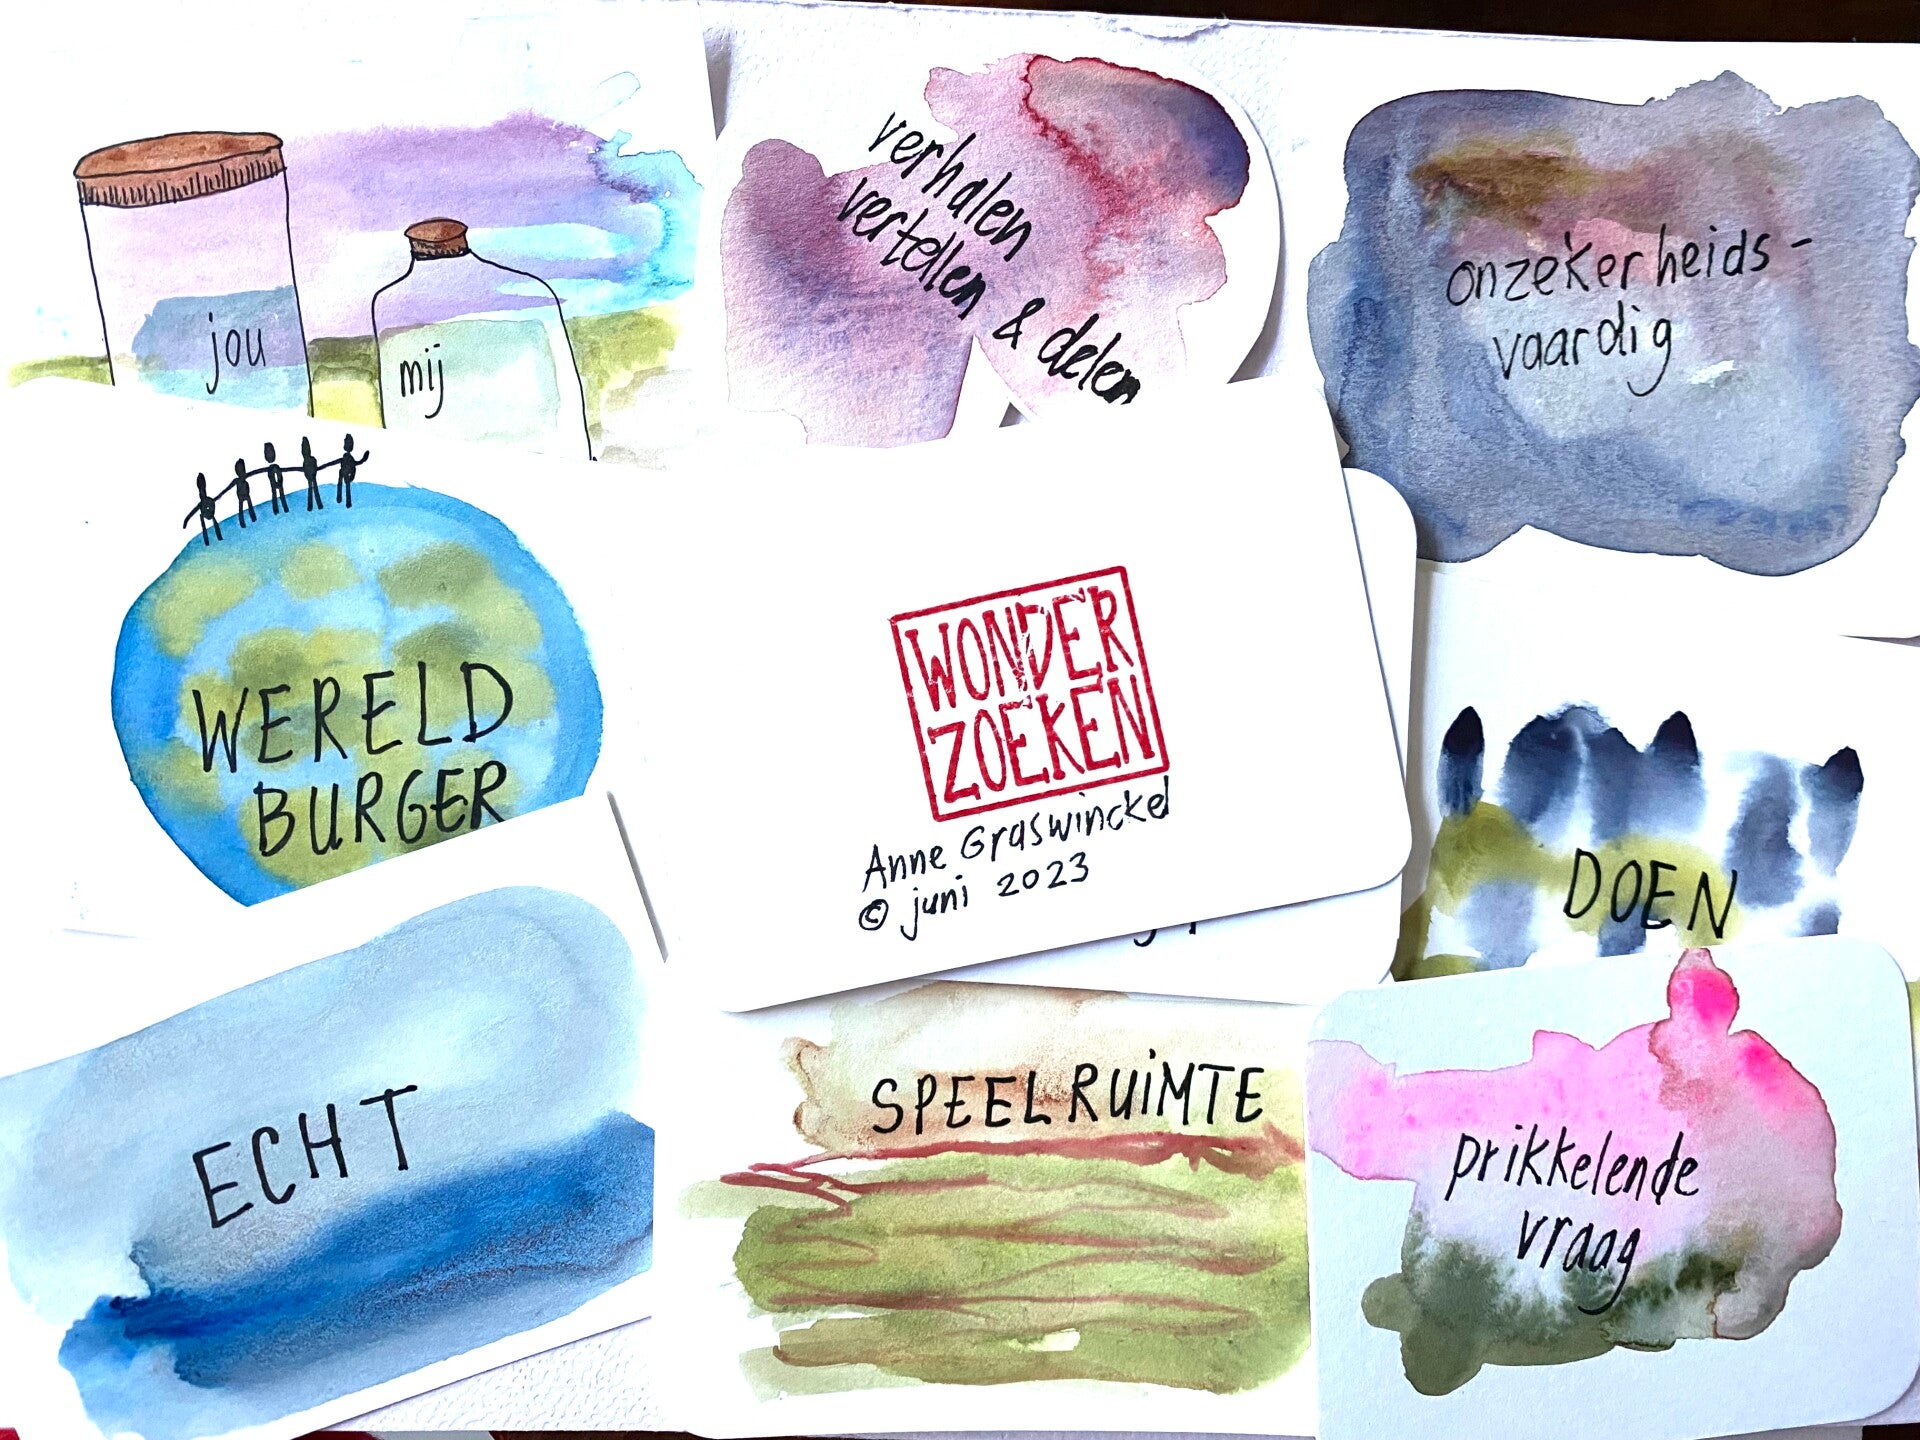 jou
mij
verhalen
vertellen & delen
onzekerheids-
vaardig
WERELD
BURGER
WONDER
ZOEKEN
Anne Graswinckel
© juni 2023
DOEN
ECHT
SPEELRUiMTE
prikkelende
vraag